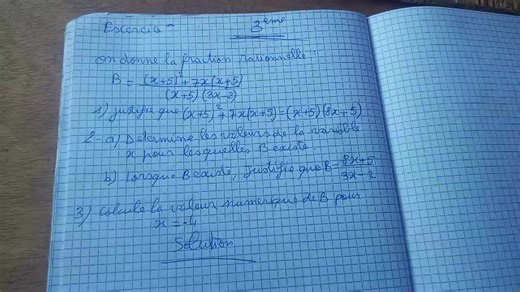 Exercice
3ème
On donne la fraction rationnelle :
B = (x+5)²+7x(x+5)
(x+5)(3x-2)
1) justifie que (x+5)²+7x(x+5)=(x+5)(8x+5)
2- a) Détermine les valeurs de la variable
x pour lesquelles B existe
b) Lorsque B existe, justifie que B= 8x+5
3x-2
3) Calcule la valeur numérique de B pour
x = -4
Solution